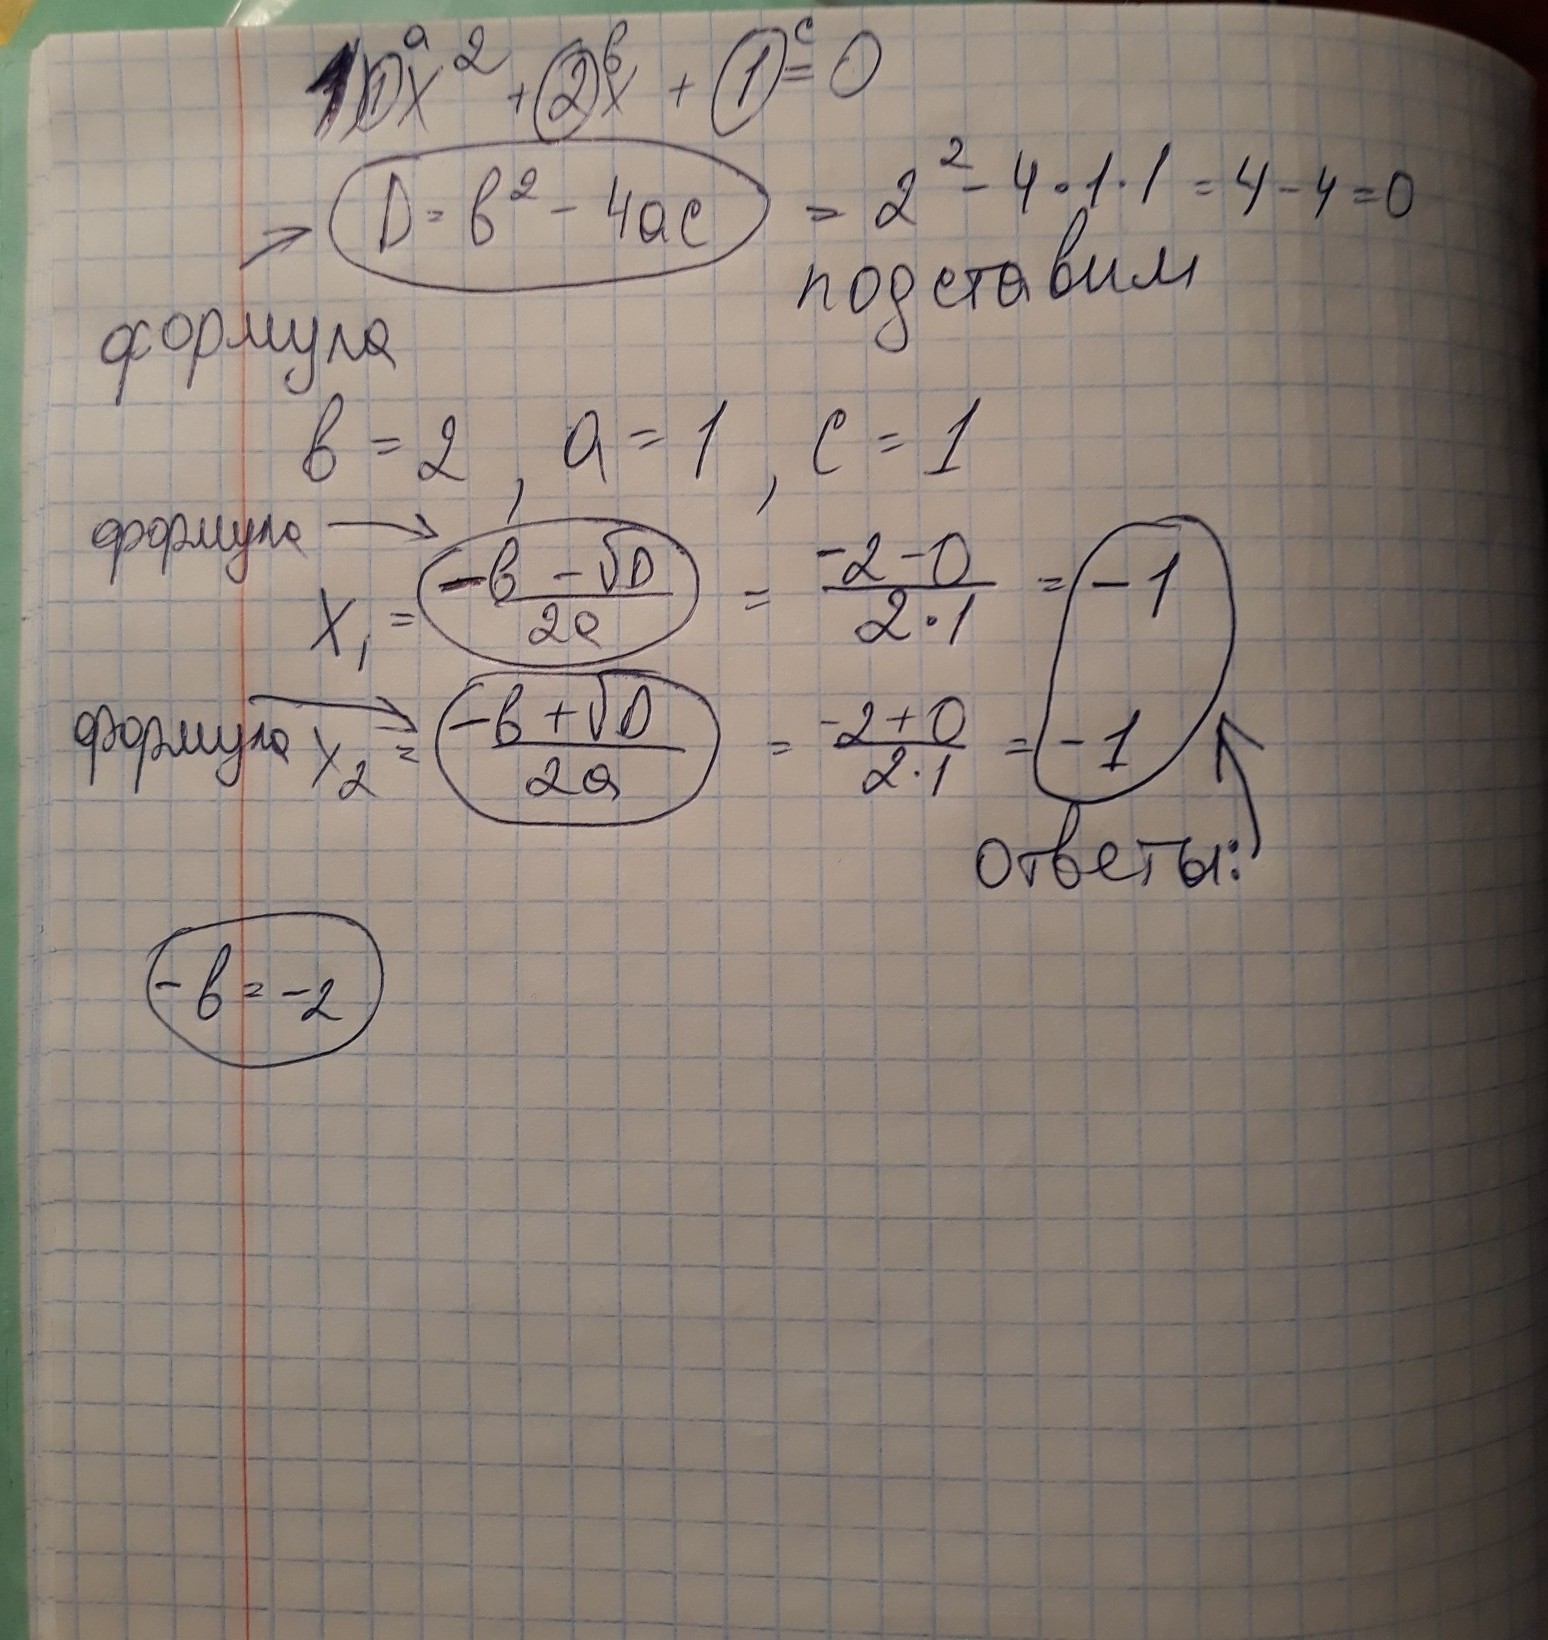 a b c
1) 1x² + 2x + 1 = 0
D = b² - 4ac = 2² - 4·1·1 = 4 - 4 = 0
подставим
формула
b = 2, a = 1, c = 1
формула
x₁ = (-b - √D)/2a = (-2 - 0)/2·1 = -1
формула x₂ = (-b + √D)/2a = (-2 + 0)/2·1 = -1
ответы:
-b = -2